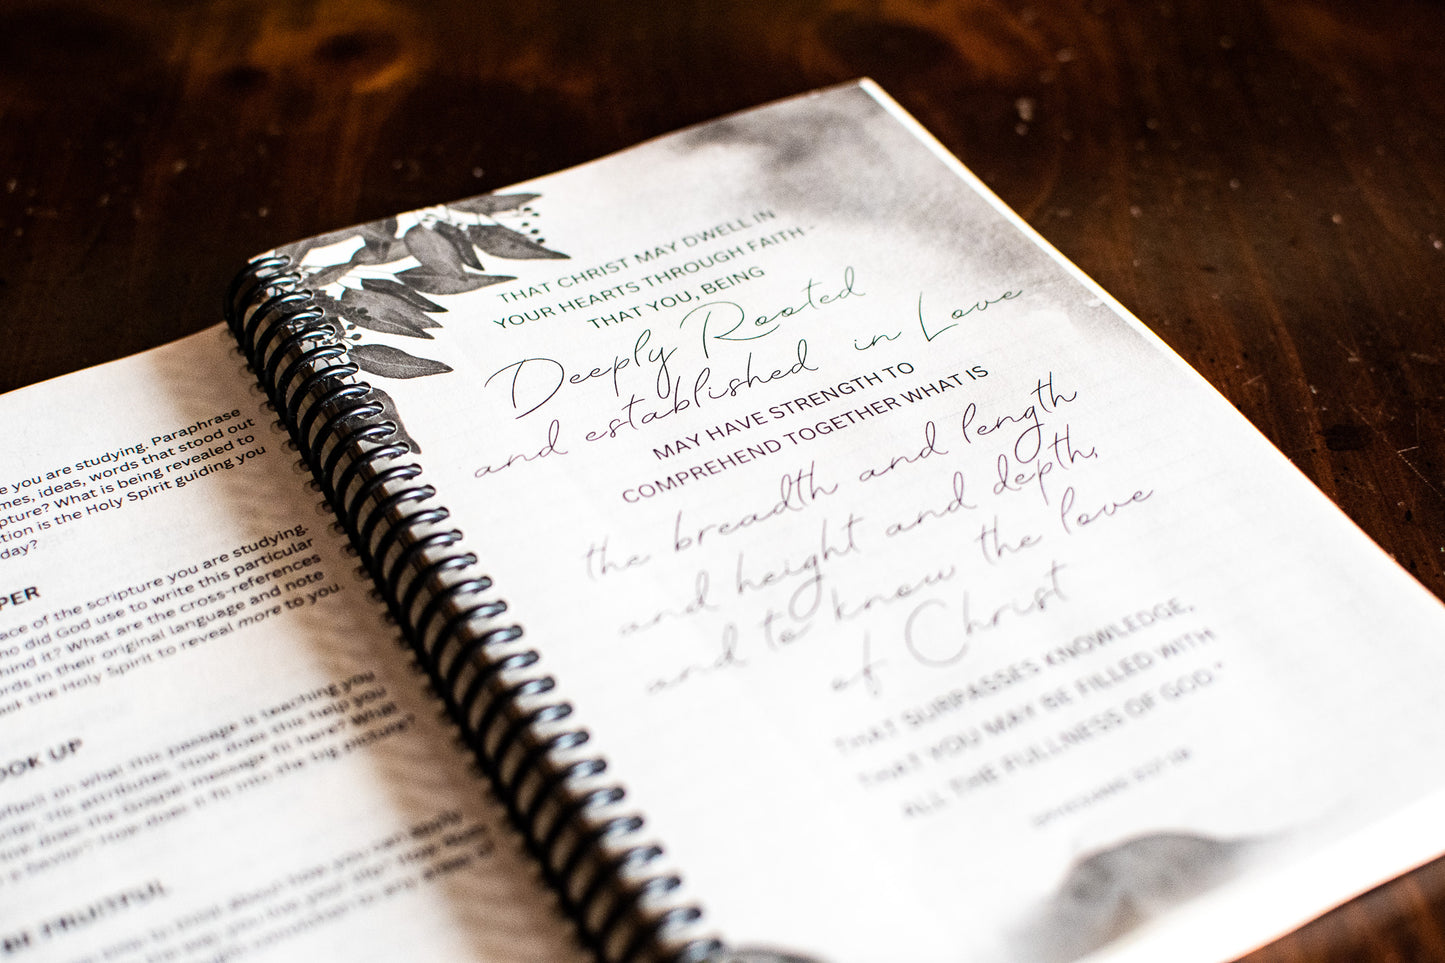 e you are studying. Paraphrase
mes, ideas, words that stood out
pture? What is being revealed to
ction is the Holy Spirit guiding you
day?
PER
ace of the scripture you are studying.
ho did God use to write this particular
hind it? What are the cross-references
ords in their original language and note
ask the Holy Spirit to reveal more to you.
OOK UP
eflect on what this passage is teaching you
His attributes. How does this help you
How does the Gospel message fit here? What
a Savior? How does it fit into the big picture?
BE FRUITFUL
about how you can apply
the way you live your life? How
THAT CHRIST MAY DWELL IN
YOUR HEARTS THROUGH FAITH -
THAT YOU, BEING
Deeply Rooted
and established in Love
MAY HAVE STRENGTH TO
COMPREHEND TOGETHER WHAT IS
the breadth and length
and height and depth,
and to know the love
of Christ
THAT SURPASSES KNOWLEDGE,
THAT YOU MAY BE FILLED WITH
ALL THE FULLNESS OF GOD."